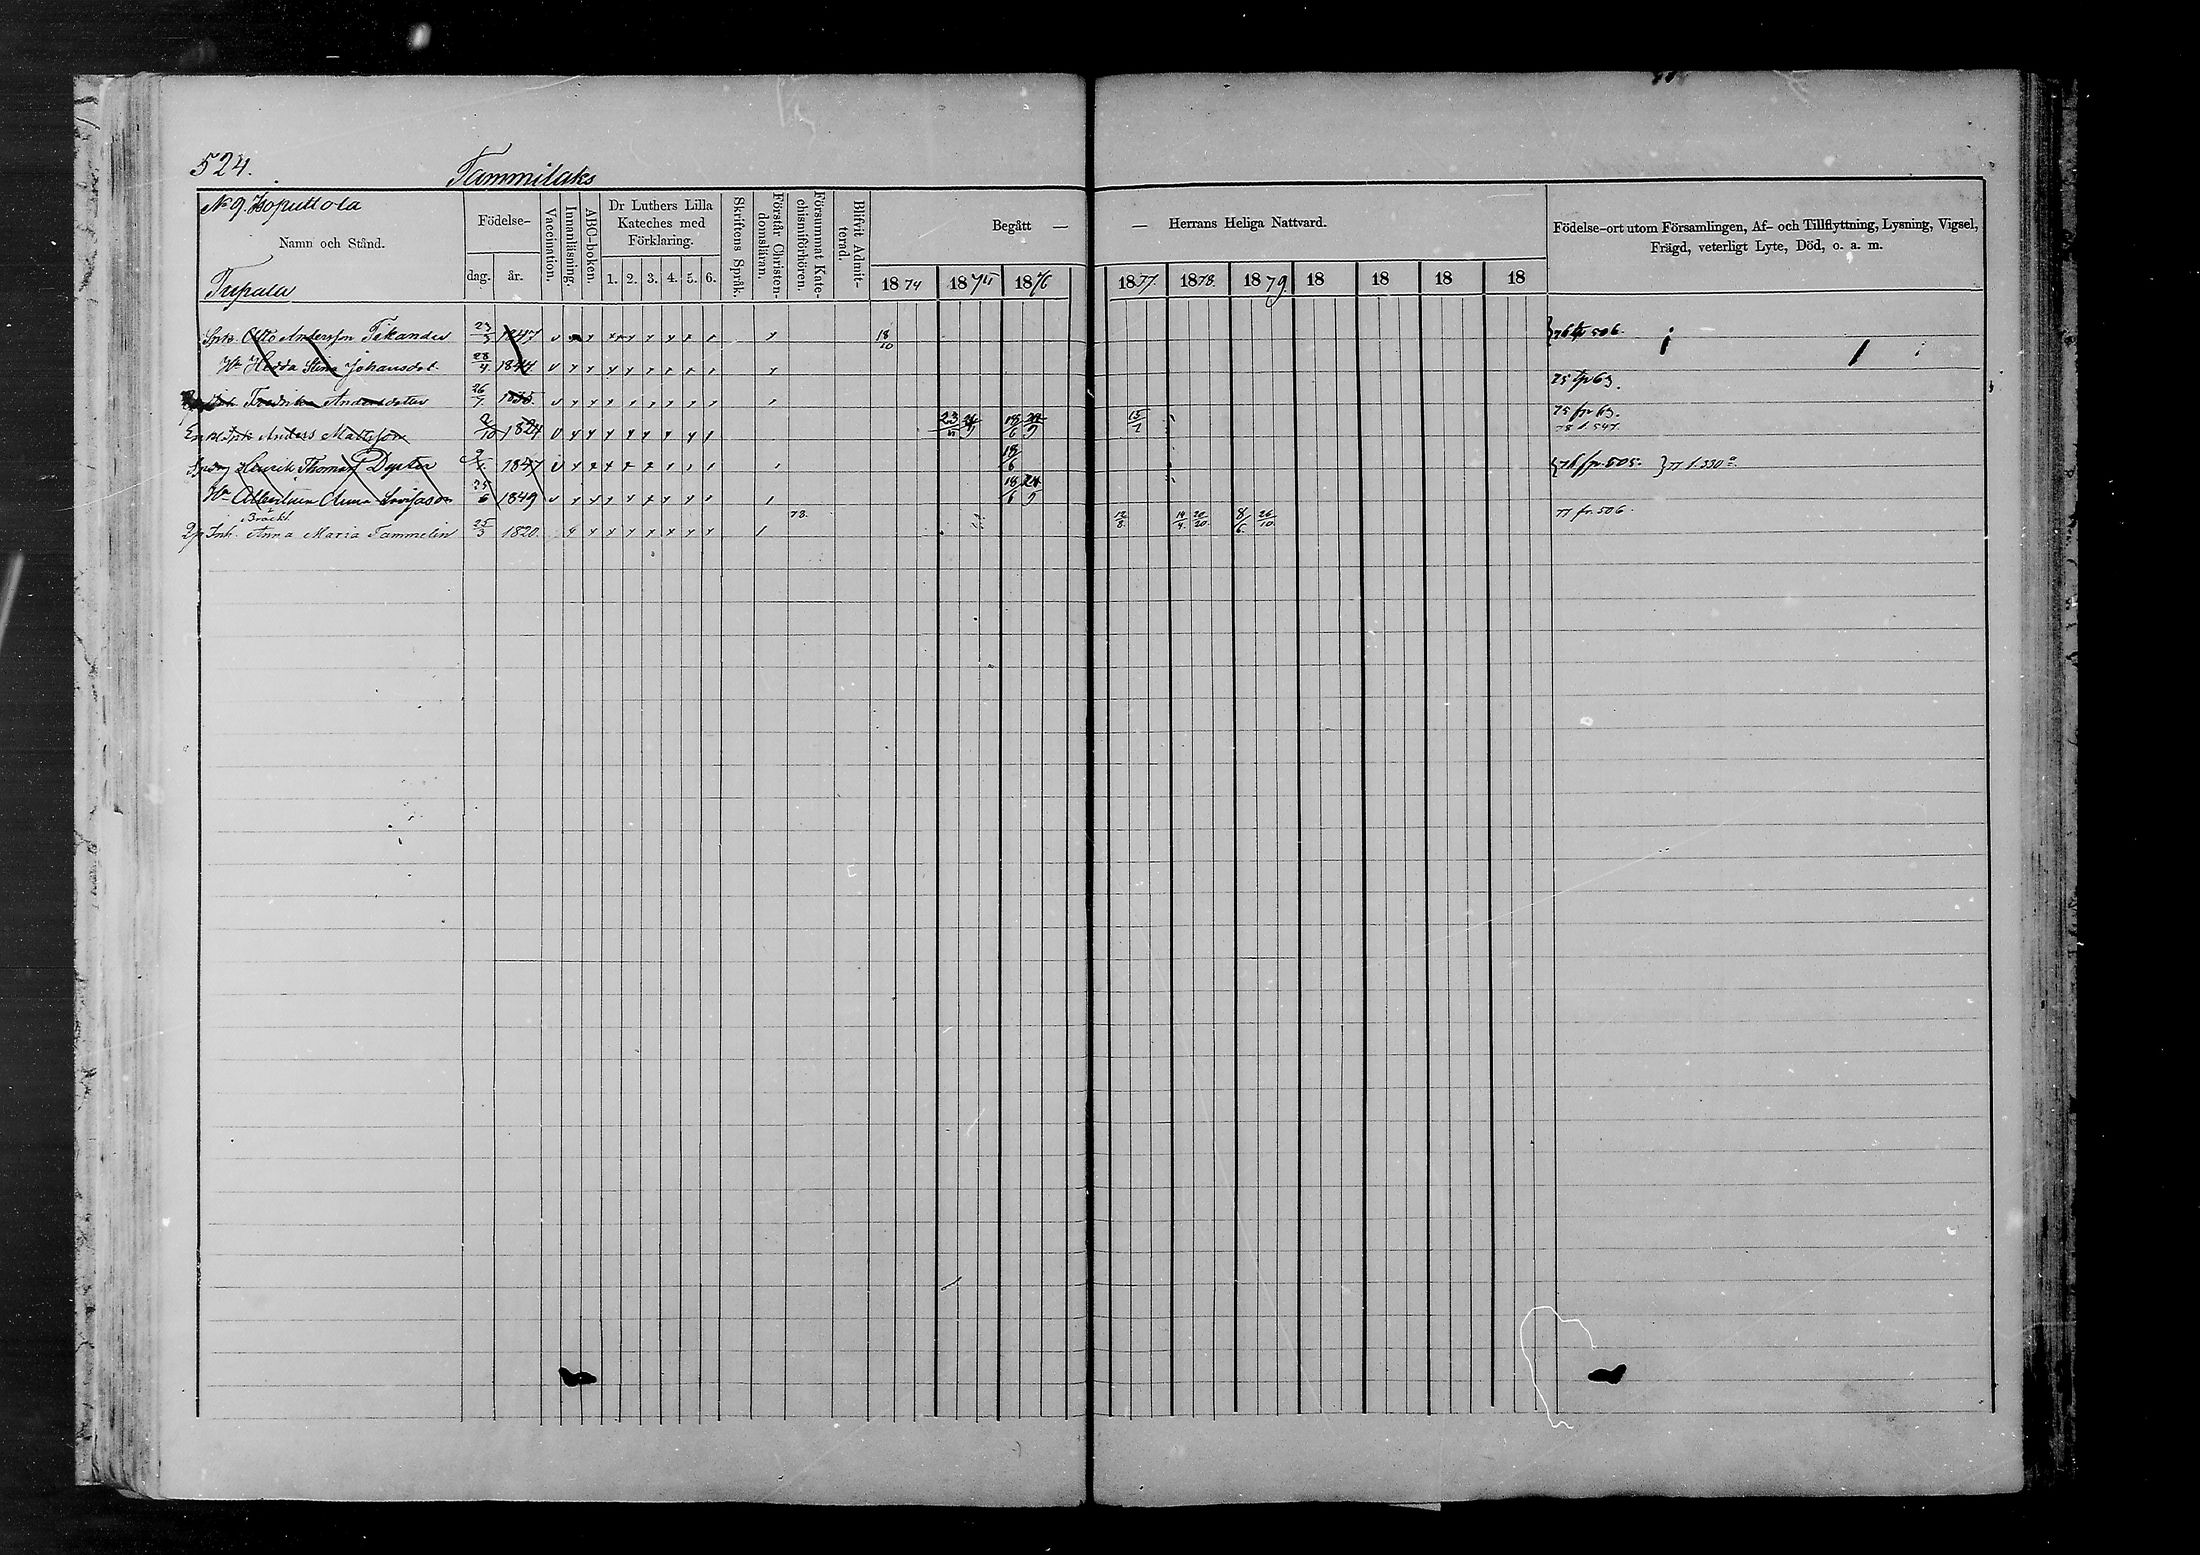 524. Tammilaks
No 9. Hoputtola
Namn och Stånd.
Födelse-
dag. år.
Vaccination.
Innanläsning.
ABC-boken.
Dr Luthers Lilla Kateches med Förklaring.
1. 2. 3. 4. 5. 6.
Skriftens Språk.
Förstår Christendomsläran.
Försummat Katechismiförhören.
Blifvit Admitterad.
Begått — — Herrans Heliga Nattvard.
1874 1875 1876 1877. 1878. 1879. 18 18 18 18
Födelse-ort utom Församlingen, Af- och Tillflyttning, Lysning, Vigsel,
Frägd, veterligt Lyte, Död, o. a. m.
Tupala
Otto Andersson Tikander 23/5 1847 18/10 76 fr 506.
Hr Hedda Stina Johansdot. 28/4 1844
Fredrika Andersdoter 26/7 75 fr 63.
Anders Mattsson 2/10 1824 23/11 18/6 24/9 15/7 75 fr 63.
78 t. 547.
Henrik Thomass. Dyster 1847 18/6 76 fr. 505. 77 t. 530
Hr Albertina Anna 25/6 1849 18/6 24/9
Bräckl. 78. 77 fr. 506.
Inh. Anna Maria Tammelin 25/3 1820. 12/8. 14/4. 20/20. 8/6. 26/10.